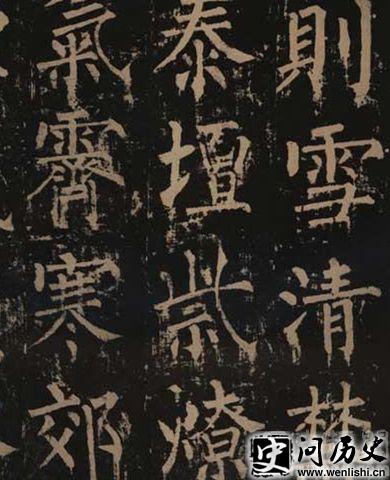 則雪清禁
泰壇祡燎
氣霽寒郊
史问历史
www.wenlishi.cn